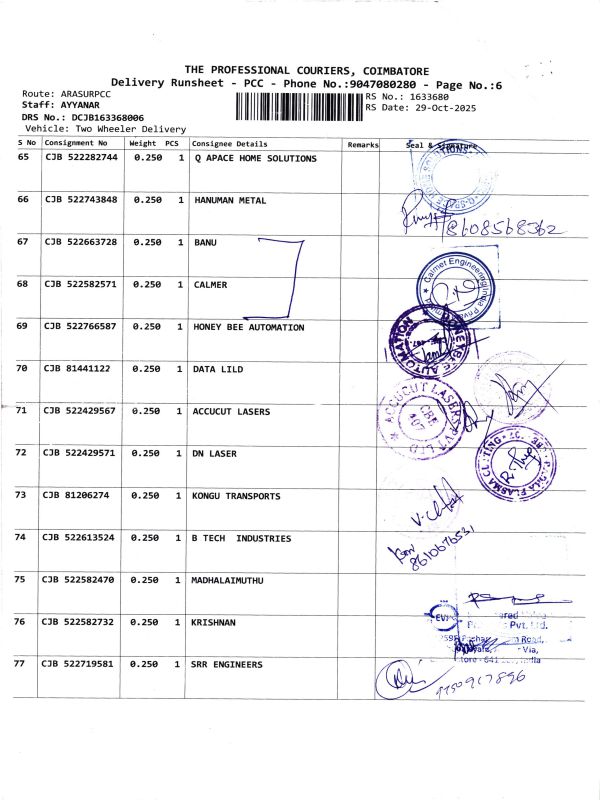 THE PROFESSIONAL COURIERS, COIMBATORE
Delivery Runsheet - PCC - Phone No.:9047080280 - Page No.:6
Route: ARASURPCC
RS No.: 1633680
Staff: AYYANAR
RS Date: 29-Oct-2025
DRS No.: DCJB163368006
Vehicle: Two Wheeler Delivery
S No Consignment No Weight PCS Consignee Details Remarks Seal & Signature
65 CJB 522282744 0.250 1 Q APACE HOME SOLUTIONS
66 CJB 522743848 0.250 1 HANUMAN METAL
8608568362
67 CJB 522663728 0.250 1 BANU
68 CJB 522582571 0.250 1 CALMER
Calmet Engineering India
69 CJB 522766587 0.250 1 HONEY BEE AUTOMATION
HONEYBEE AUTOMATION
70 CJB 81441122 0.250 1 DATA LILD
71 CJB 522429567 0.250 1 ACCUCUT LASERS
ACCUCUT LASERS PVT LTD
CBE
407
72 CJB 522429571 0.250 1 DN LASER
PLASMA CUTTING
73 CJB 81206274 0.250 1 KONGU TRANSPORTS
74 CJB 522613524 0.250 1 B TECH INDUSTRIES
8610676531
75 CJB 522582470 0.250 1 MADHALAIMUTHU
76 CJB 522582732 0.250 1 KRISHNAN
Pvt. Ltd.
Road,
Via,
77 CJB 522719581 0.250 1 SRR ENGINEERS
9750917896